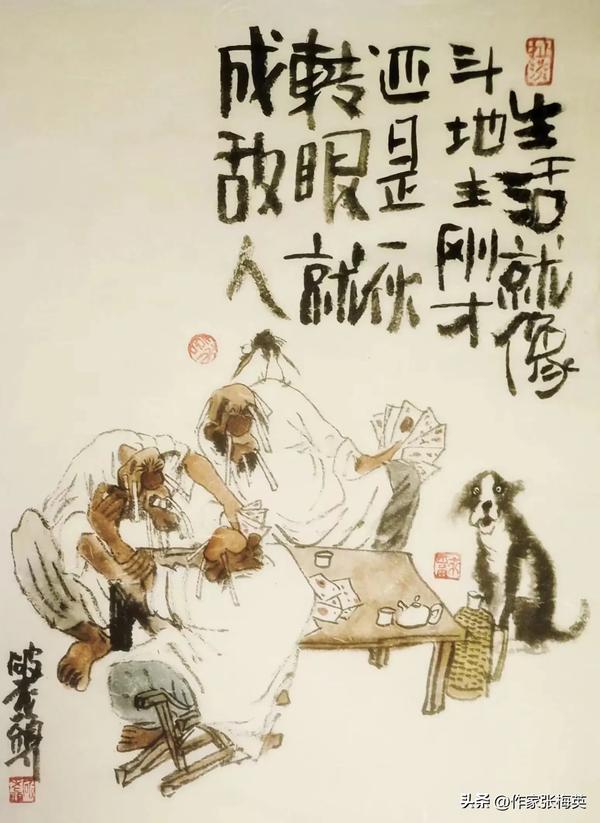 生活就像
斗地主刚才
还是一伙
转眼就
成敌人
头条 @作家张梅英